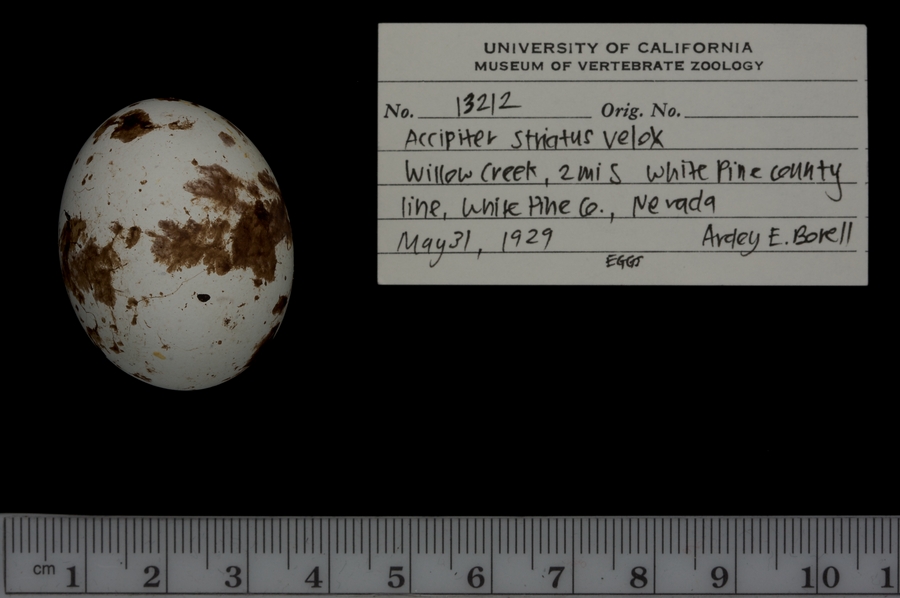 UNIVERSITY OF CALIFORNIA
MUSEUM OF VERTEBRATE ZOOLOGY
No. 13212 Orig. No.
Accipiter striatus velox
Willow Creek, 2 mi S White Pine county
line, White Pine Co., Nevada
May 31, 1929 Ardey E. Borell
EGGS
cm 1 2 3 4 5 6 7 8 9 10 1